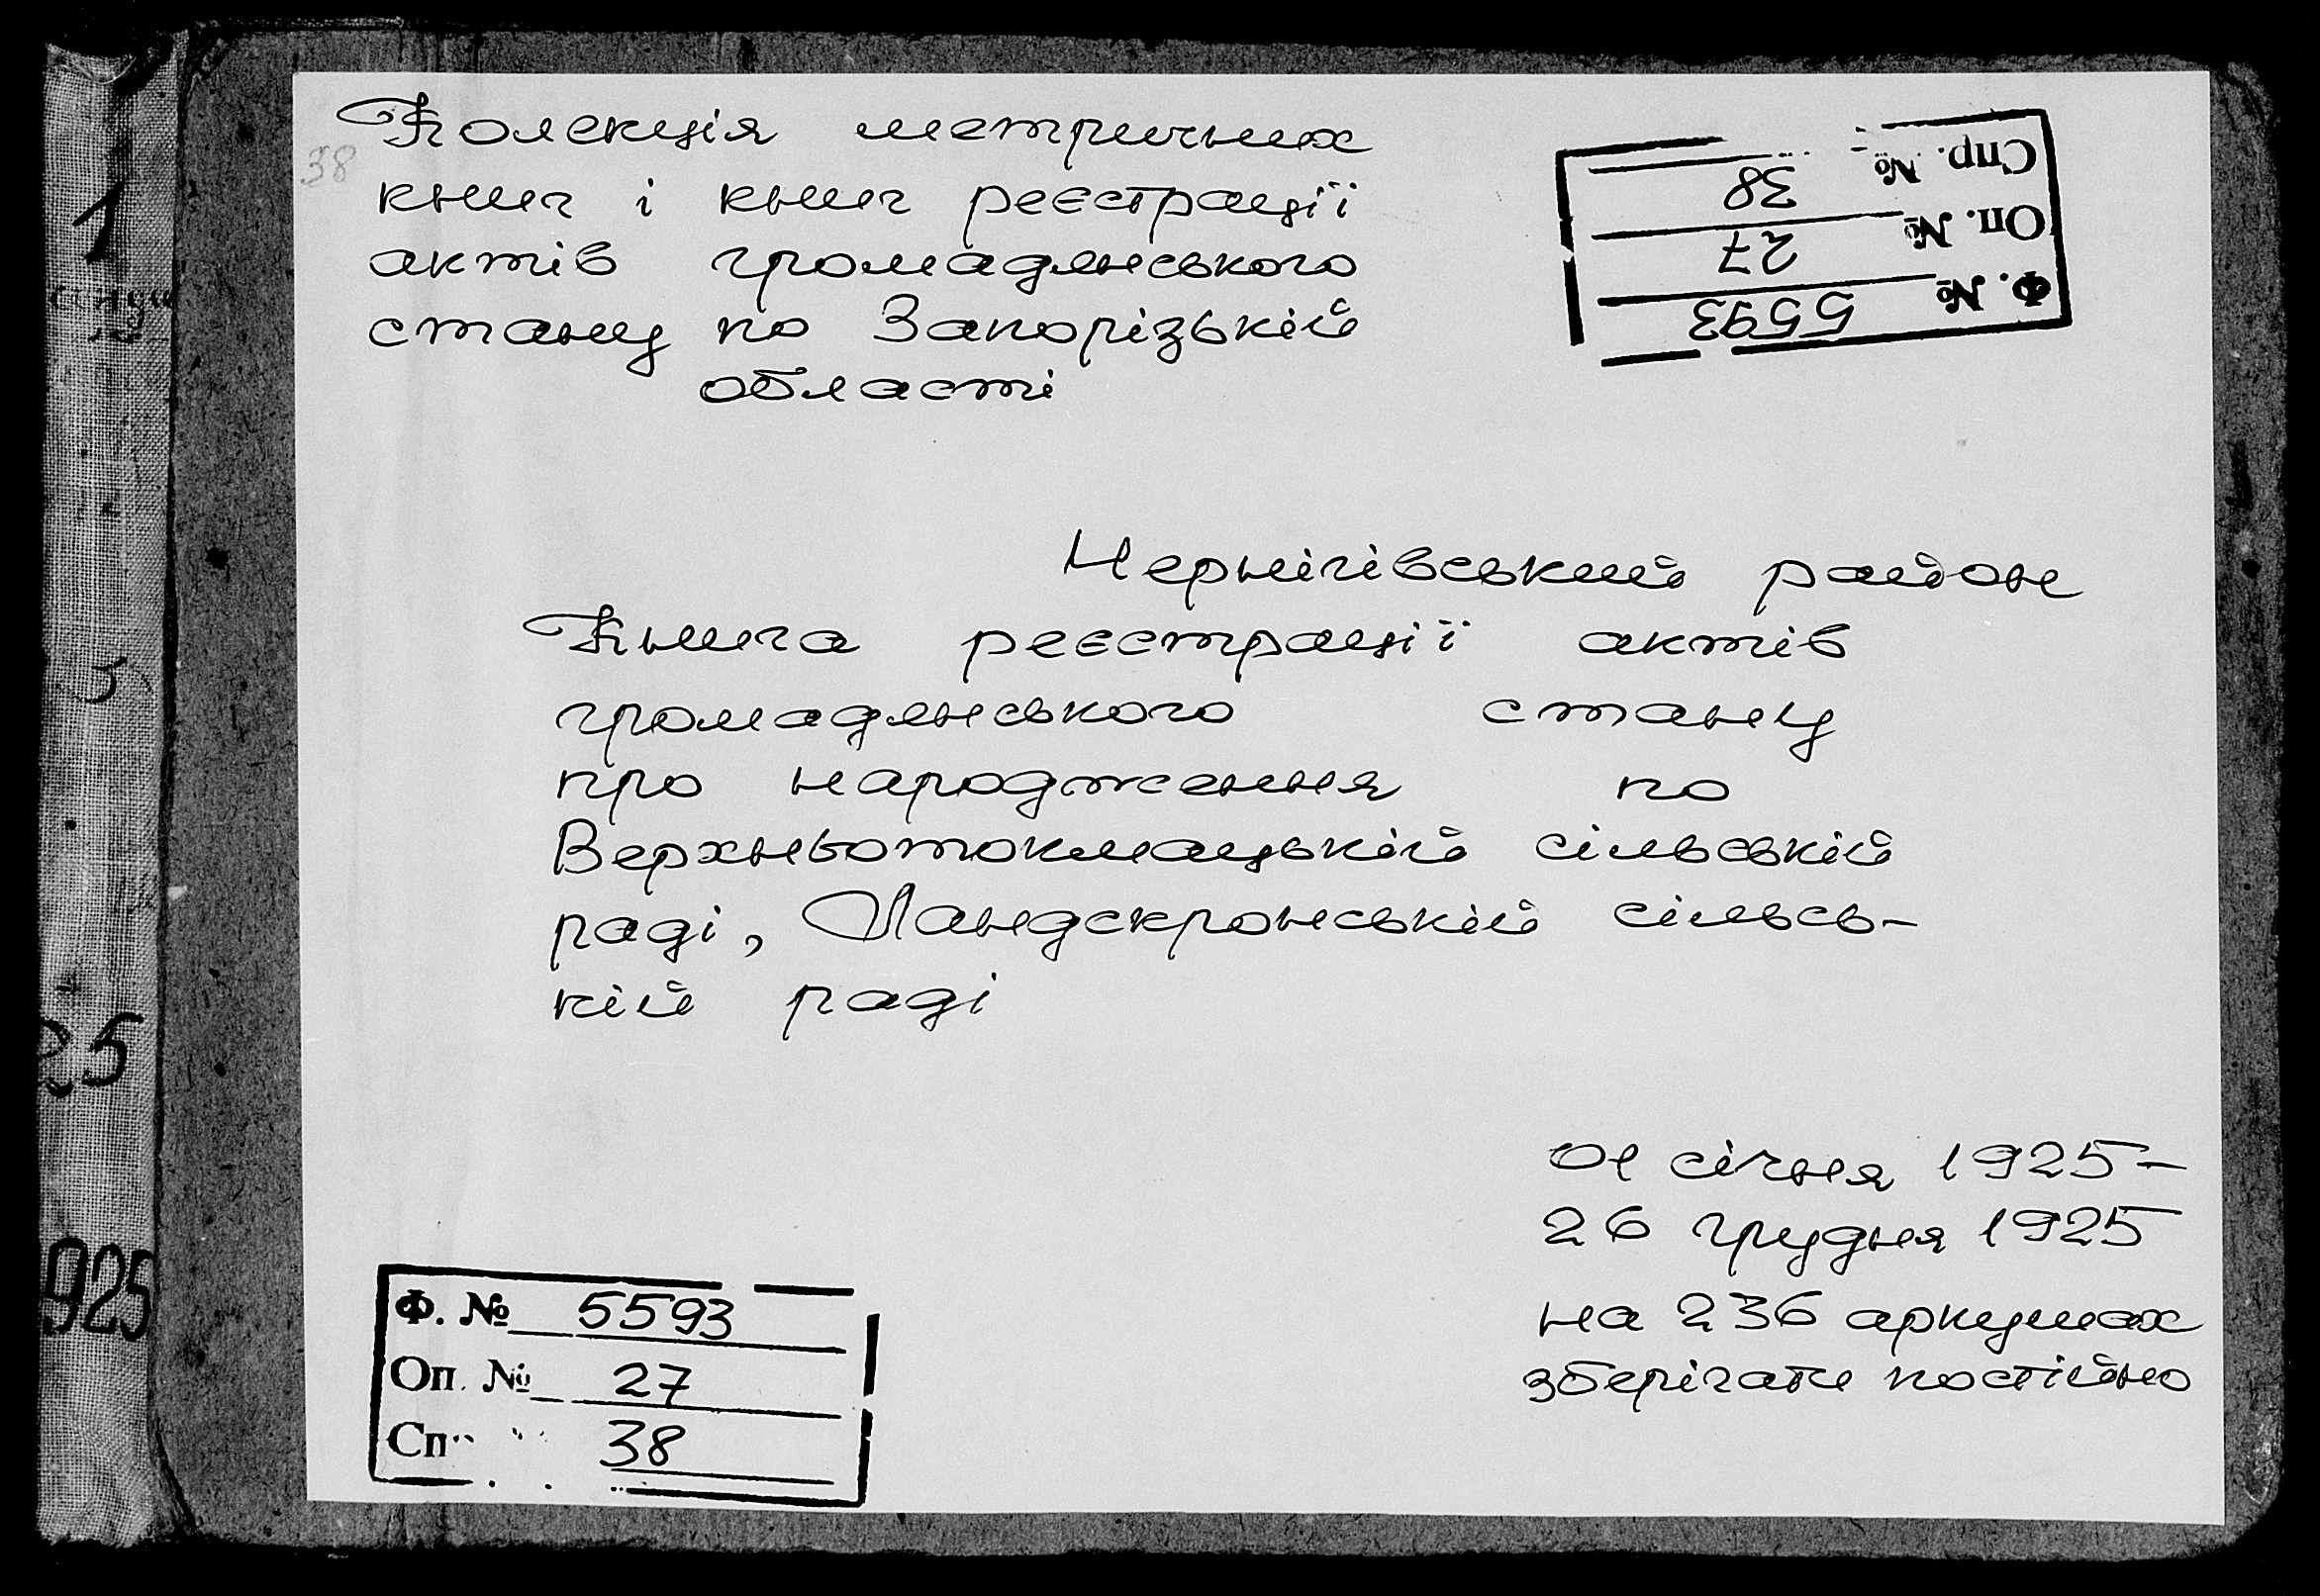 Колекція метричних
38
книг і книг реєстрації
актів громадянського
стану по Запорізькій
області
Спр. № 38
Оп. № 27
Ф. № 5593
Чернігівський район
Книга реєстрації актів
громадянського стану
про народження по
Верхньотокмацькій сільській
раді, Ландскронській сільсь-
кій раді
01 січня 1925-
26 грудня 1925
на 236 аркушах
зберігати постійно
Ф. № 5593
Оп. № 27
Сп 38
1
5
25
925